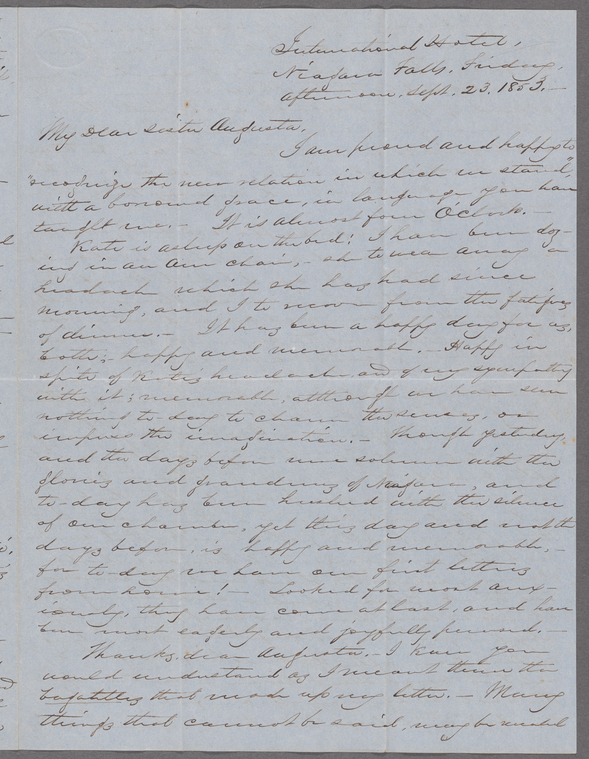 International Hotel,
Niagara Falls, Friday,
afternoon, Sept. 23. 1853.—
My Dear Sister Augusta,
I am proud and happy to
"recognize the new relation in which we stand",
with a borrowed grace, in language you have
taught me.— It is almost four O'Clock.—
Kate is asleep on the bed; I have been doz-
ing in an arm chair,— she to wear away a
headach which she has had since
morning, and I to recover from the fatigues
of dinner.— It has been a happy day for us,
both;— happy and memorable.— Happy in
spite of Katie's headach and of my sympathy
with it; memorable, although we have seen
nothing to day to charm the senses, or
impress the imagination.— Though yesterday
and the days before were solemn with the
glories and grandeurs of Niagara, and
to day has been hushed with the silence
of our chamber, yet this day and not the
days before, is happy and memorable,—
for to-day we have our first letters
from home!— Looked for most anx-
iously, they have come at last, and have
been most eagerly and joyfully perused.—
Thanks, dear Augusta,— I knew you
would understand as I meant them the
bagatelles that made up my letter.— Many
things that cannot be said, may be